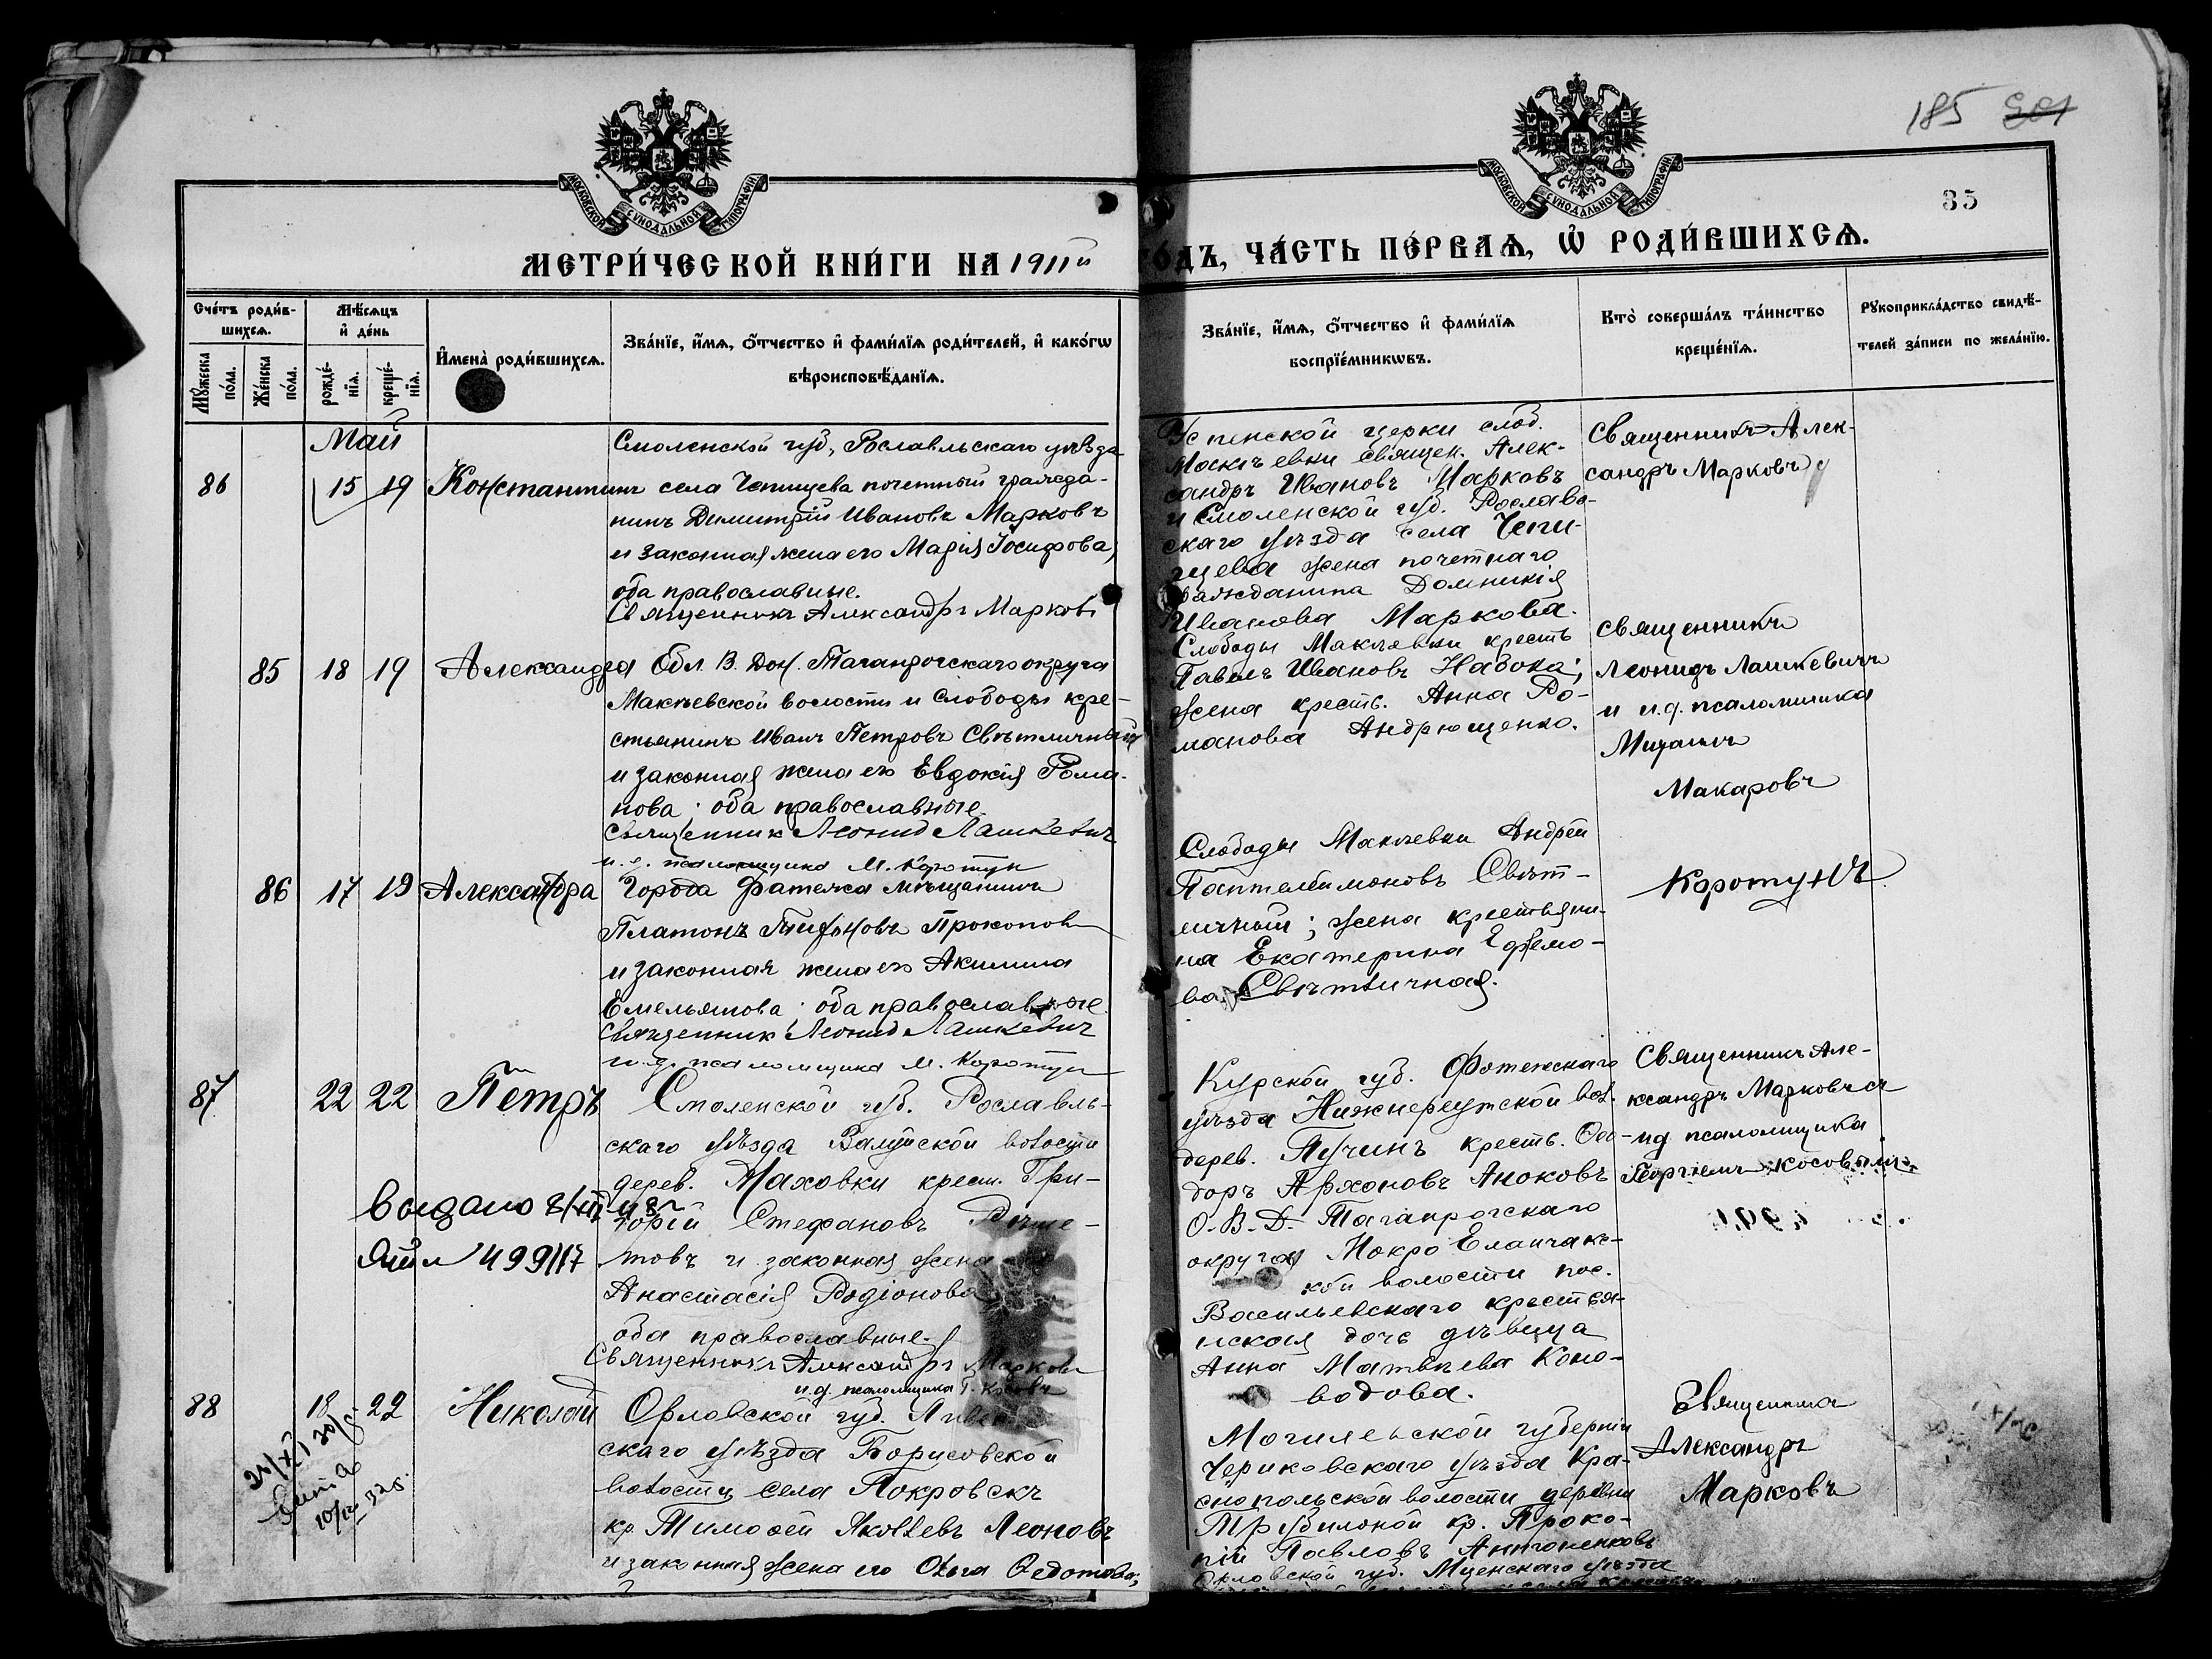 185
МОСКОВСКОЙ СѴНОДАЛЬНОЙ ТИПОГРАФІИ
МОСКОВСКОЙ СѴНОДАЛЬНОЙ ТИПОГРАФІИ
35
МЕТРИ́ЧЕСКОЙ КНИ́ГИ НА 1911й
ГО́ДЪ, ЧА́СТЬ ПЕ́РВАѦ, Ѡ РОДИ́ВШИХСѦ.
Сче́тъ роди́в-
шихсѧ.
Мꙋ́жеска по́ла.
Же́нска по́ла.
Мѣ́сѧцъ
и де́нь
рожде́-
нїѧ.
креще́-
нїѧ.
Имена̀ роди́вшихсѧ.
Зва́нїе, и́мѧ, о́тчество и фами́лїѧ роди́телей, и како́гѡ
вѣроисповѣ́данїѧ.
Зва́нїе, и́мѧ, о́тчество и фами́лїѧ
воспрїе́мникѡвъ.
Кто̀ соверша́лъ та́инство
креще́нїѧ.
Рꙋкоприкла́дство свидѣ́-
телей за́писи по жела́нїю.
Май
86 15 19 Константинъ
Смоленской губ., Рославльскаго уѣзда
села Чепищева почетный гражда-
нинъ Димитрій Ивановъ Марковъ
и законная жена его Марія Іосифова,
оба православные.
Священникъ Александръ Марковъ
Успенской церкви слоб.
Макѣевки священ. Алек-
сандръ Ивановъ Марковъ
и Смоленской губ. Рославль-
скаго уѣзда села Чепи-
щева жена почетнаго
гражданина Домникія
Иванова Маркова.
Священникъ Алек-
сандръ Марковъ
85 18 19 Александра
Обл. В. Дон. Таганрогскаго округа
Макѣевской волости и слободы кре-
стьянинъ Иванъ Петровъ Свѣтличный
и законная жена его Евдокія Рома-
нова; оба православные
Священник Леонид Лашкевич
и.д. псаломщика М. Коротун
Слободы Макѣевки крестъ
Павелъ Ивановъ Набока;
жена крестъ. Анна Ро-
манова Андрющенко.
Священникъ
Леонидъ Лашкевичъ
и и.д. псаломщика
Михаилъ
Макаровъ
Коротунъ
86 17 19 Александра
Города Фатежа мѣщанинъ
Платонъ Тихоновъ Прокопов
и законная жена его Акилина
Емельянова; оба православные
Священник Леонид Лашкевич
и.д. псаломщика М. Коротун
Слободы Макѣевки Андрей
Пантелеимоновъ Свѣт-
личный; жена крестьяни-
на Екатерина Ефремо-
ва Свѣтличная.
87 22 22 Петръ
Смоленской губ. Рославль-
скаго уѣзда
волости
дерев. Маховки крест. Гри-
горій Стефановъ
и законная жена
Анастасія Родіонова
оба православные.
Священникъ Александръ Марковъ
и.д. псаломщика Г. Косовъ
выдано
499/17
Курской губ. Фатежскаго
уѣзда Нижнереутской вол.
дерев. Пучинъ крестъ. Ѳео-
доръ
О.В.Д. Таганрогскаго
округа Мокро Еланчик-
кой волости пос.
Васильевскаго крестья-
нская дочь дѣвица
Анна Матвѣева Коно-
водова.
Священникъ Але-
ксандръ Марковъ и
ид псаломщика
Георгіемъ Косовымъ.
88 18 22 Николай
Орловской губ. Ливен-
скаго уѣзда Борисовской
волости села Покровскъ
кр. Тимоѳей Яковлевъ Леоновъ
и законная жена его Ольга Ѳедотова;
Могилевской губерніи
Чериковскаго уѣзда Кра-
снопольской волости деревни
кр. Проко-
пій Павловъ Антоненковъ
Орловской губ. Мценскаго уѣзда
Священика
Александръ
Марковъ